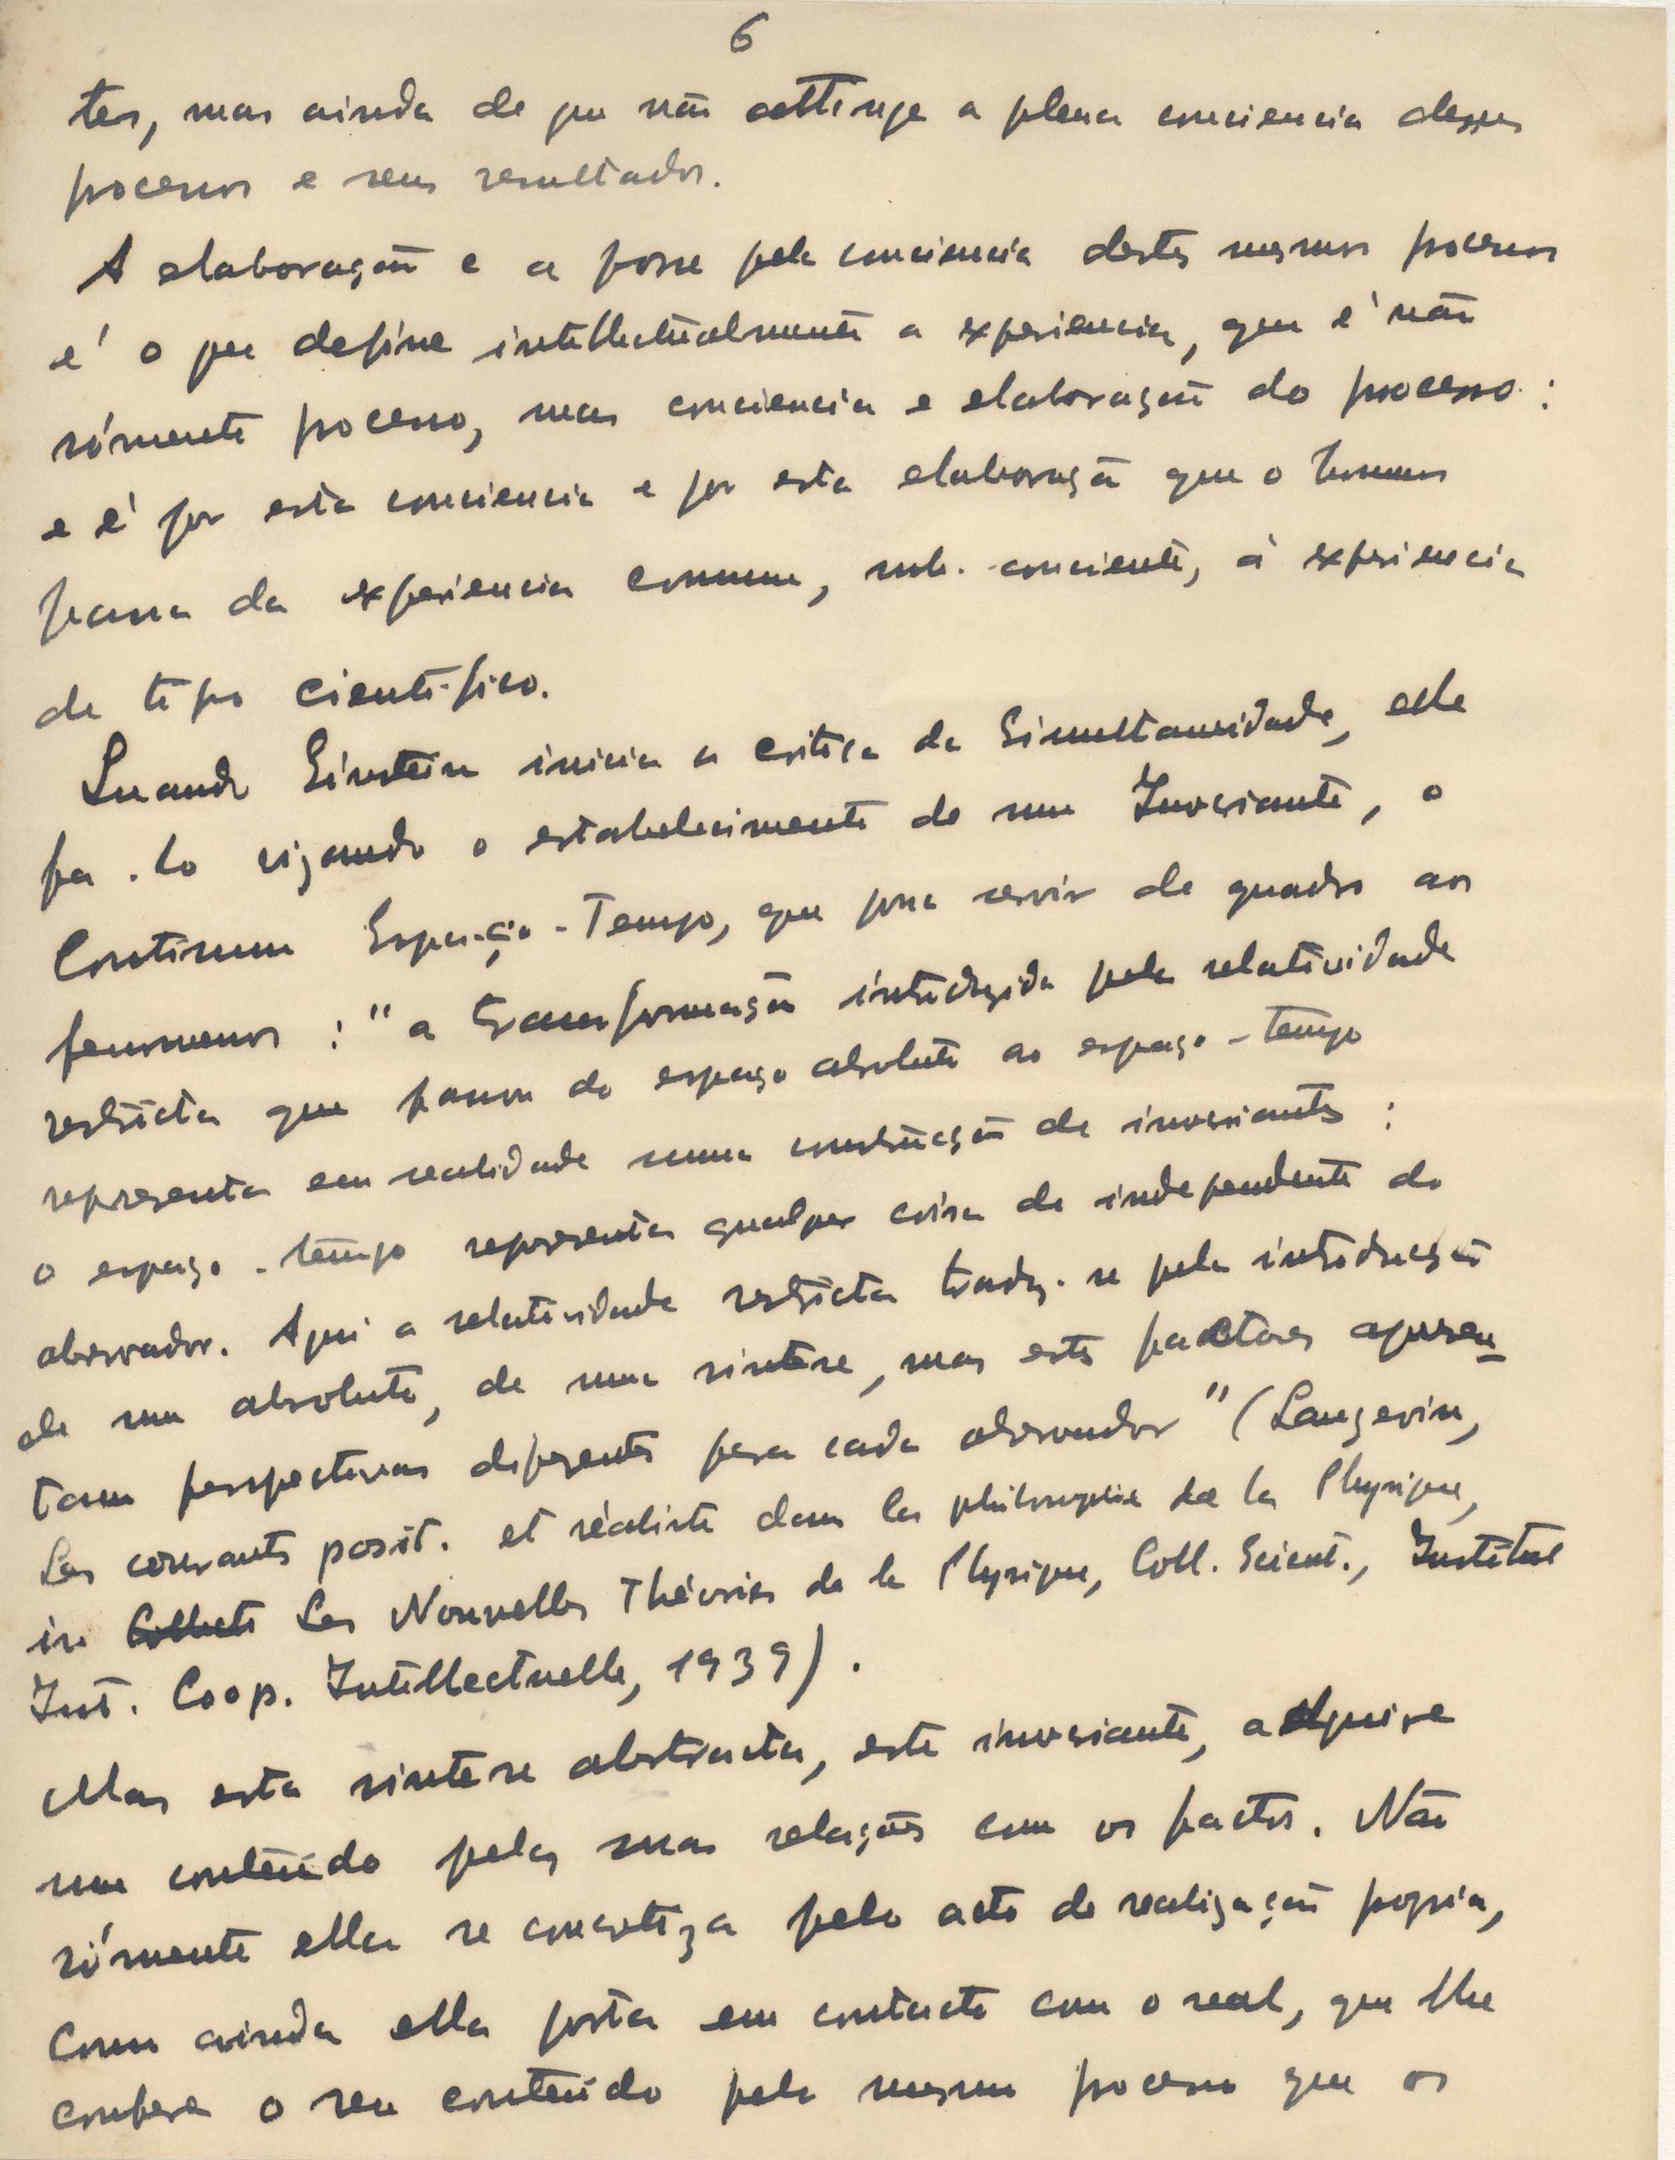 6
tes, mas ainda de que não attinge a plena conciencia desses
processos e seus resultados.
A elaboração e a posse pela conciencia destes mesmos processos
é o que define intellectualmente a experiencia, que é não
sómente processo, mas conciencia e elaboração do processo:
e é por esta conciencia e por esta elaboração que o homem
passa da experiencia commum, sub-conciente, á experiencia
de tipo cientifico.
Quando Einstein inicia a critica da Simultaneidade, elle
fa-lo visando o estabelecimento de um Invariante, o
Continuum Espaço-Tempo, que possa servir de quadro aos
fenomenos: "a transformação introduzida pela relatividade
restricta que passou do espaço absoluto ao espaço-tempo
representa em realidade uma construcção de invariantes:
o espaço-tempo representa qualquer coisa de independente do
observador. Aqui a relatividade restricta traduz-se pela introducção
de um absoluto, de uma sintese, mas estes factores apresen-
tam perspectivas diferentes para cada observador" (Langevin,
Les courants posit. et réaliste dans la philosophie de la Physique,
in Collecti Les Nouvelles Théories de la Physique, Coll. Scient., Institut
Int. Coop. Intellectuelle, 1939).
Mas esta sintese abstracta, este invariante, adquire
um conteúdo pelas suas relações com os factos. Não
sómente ella se concretiza pelo acto de realização propria,
como ainda ella posta em contacto com o real, que lhe
confere o seu conteúdo pelo mesmo processo que os